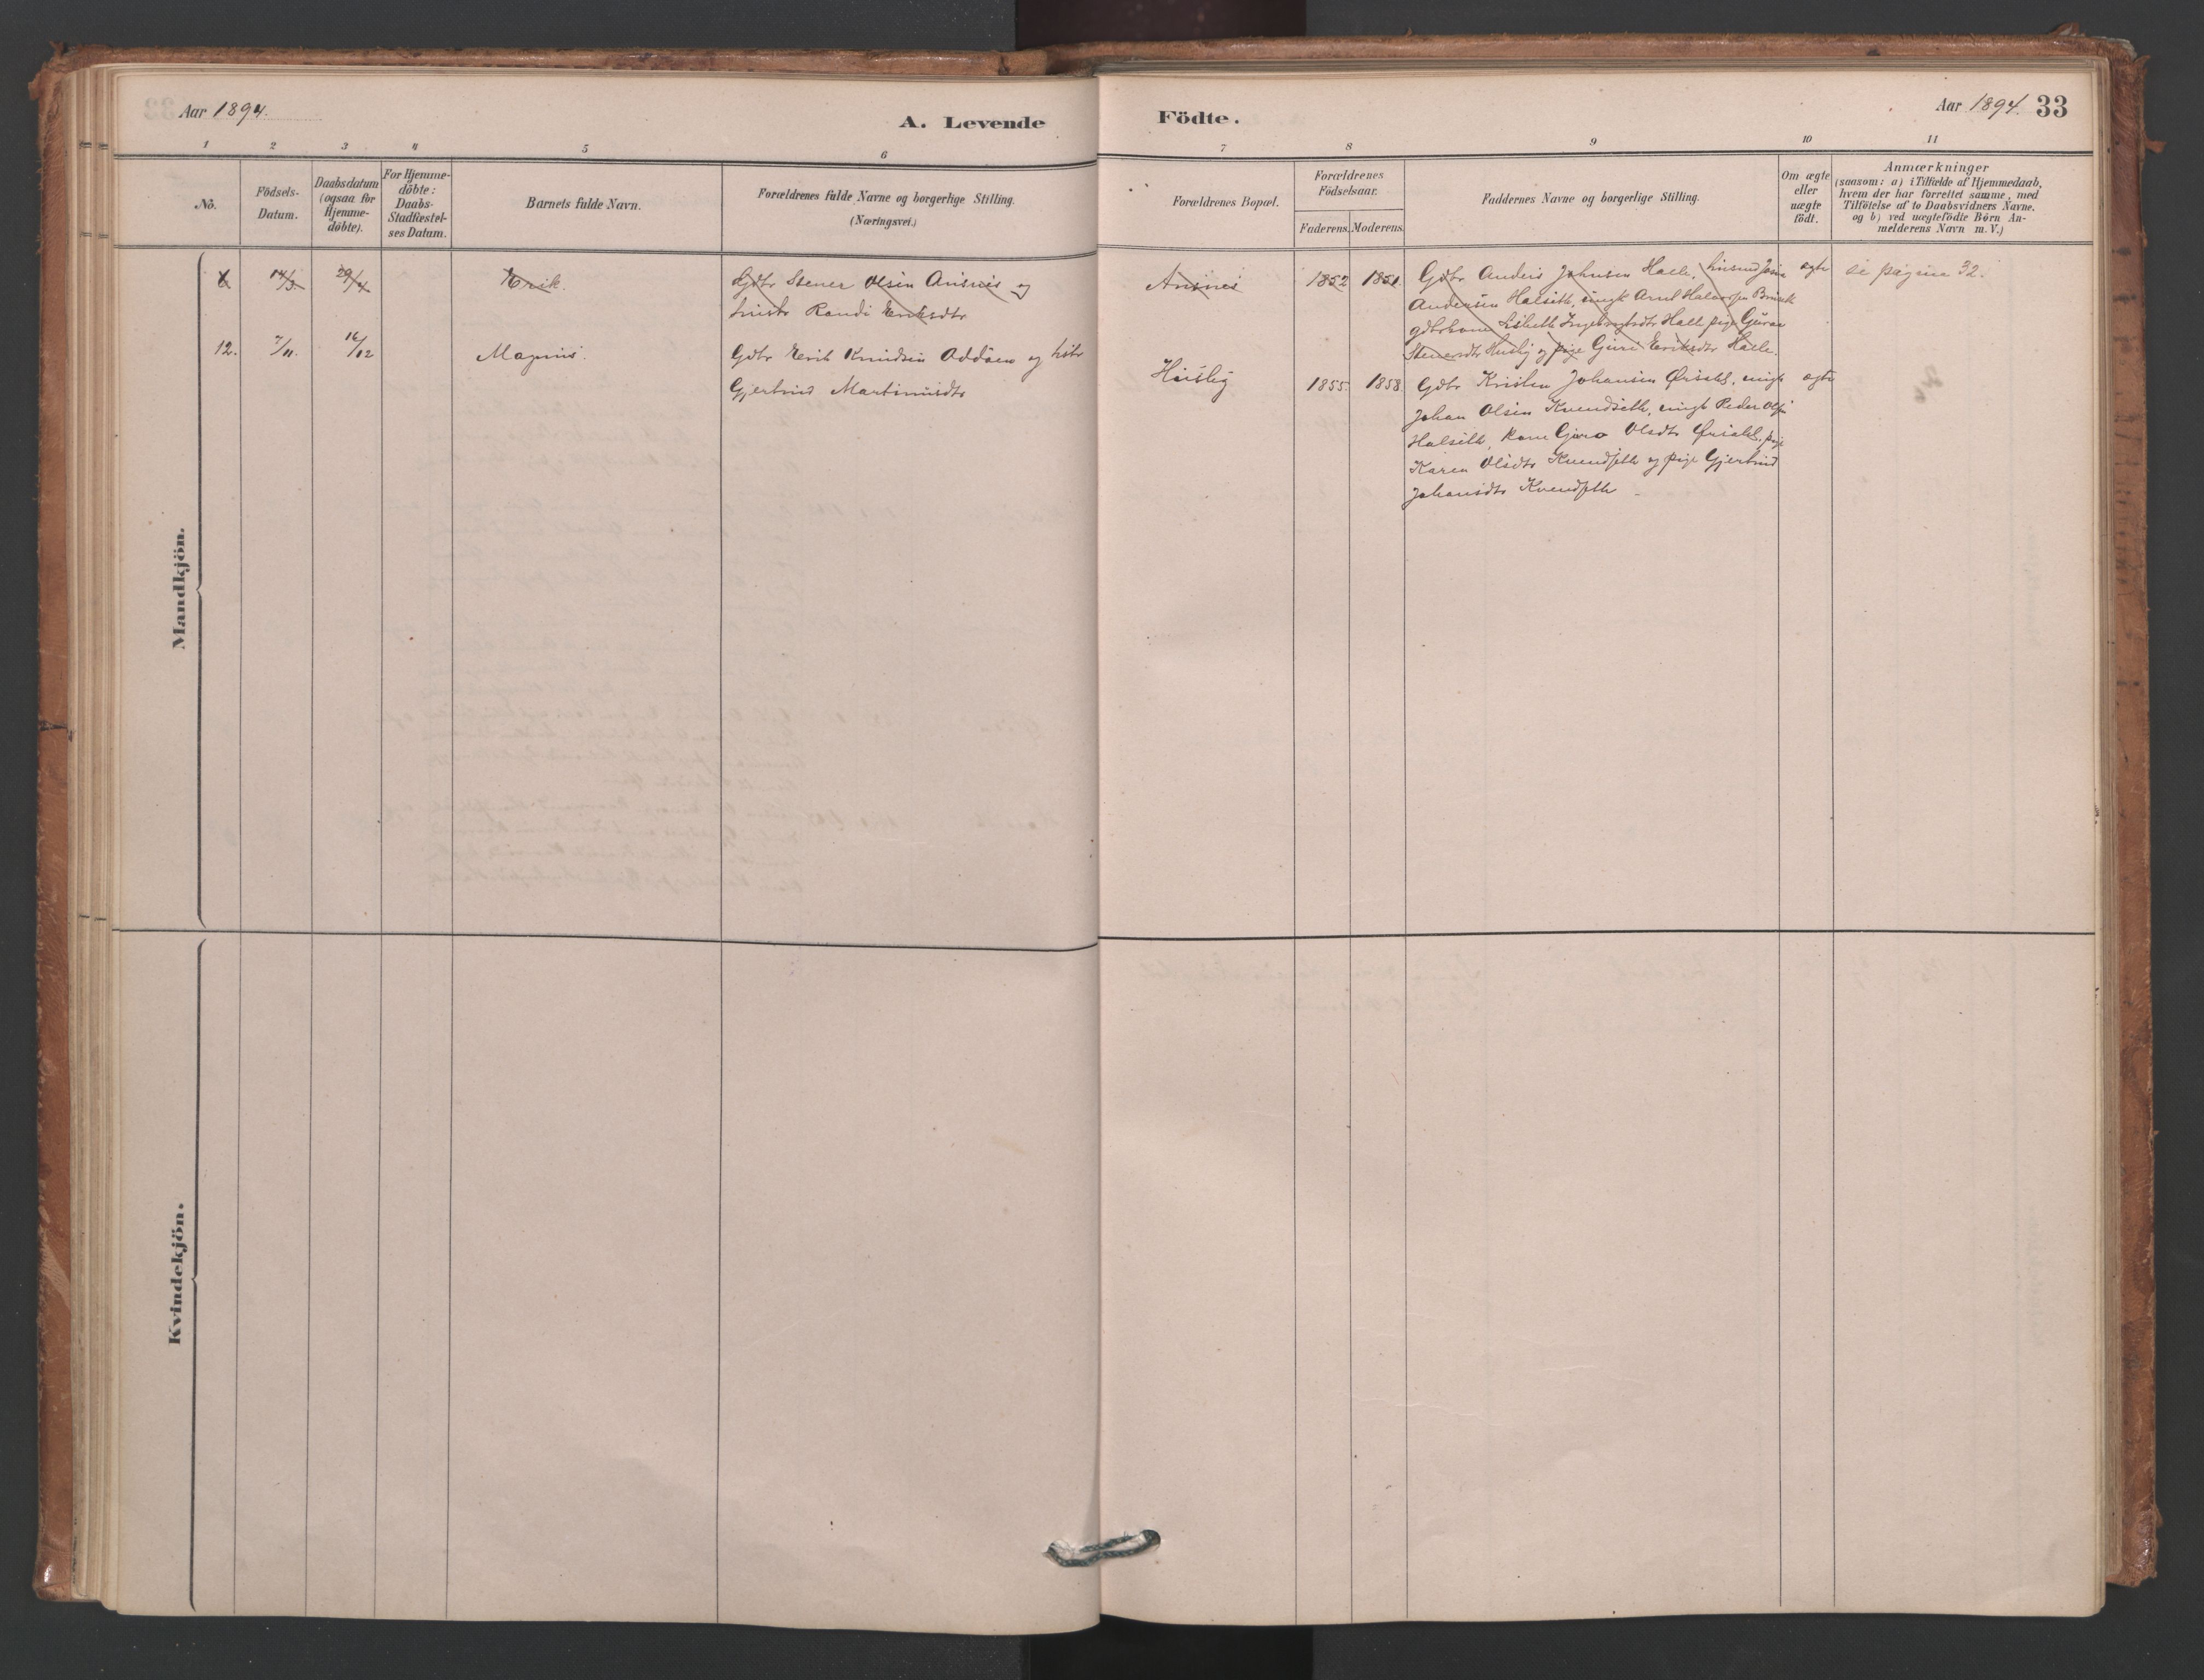 Aar 1894.
A. Levende
Födte.
Aar 1894. 33
1 2 3 4 5 6 7 8 9 10 11
No.
Födsels-
Datum.
Daabsdatum
(ogsaa for
Hjemme-
döbte).
For Hjemme-
döbte:
Daabs-
Stadfæstel-
ses Datum.
Barnets fulde Navn.
Forældrenes fulde Navne og borgerlige Stilling.
(Næringsvei.)
Forældrenes Bopæl.
Forældrenes
Födselsaar.
Faderens. Moderens.
Faddernes Navne og borgerlige Stilling.
Om ægte
eller
uægte
födt.
Anmærkninger
(saasom: a) i Tilfælde af Hjemmedaab,
hvem der har forrettet samme, med
Tilföielse af to Daabsvidners Navne.
og b) ved uægtefödte Börn An-
melderens Navn m. V.)
Mandkjön.
14/3 29/4 Erik. Gdbr Stener Olsen Aisnes og
Randi Eriksdtr
Aisnes 1852 1851. Gdbr Anders Johnsen Halle,
Andersen Halseth, ungk Arnt Halvorsen
gdbrkone Lisbeth Ingebrigtsdtr Halle pige Guroe
Stenersdtr Husby og pige Guri Eriksdtr Halle.
ægte se pagina 32.
12. 7/11. 16/12 Magnus. Gdbr Erik Knudsen Oddöen og hstr
Gjertrud Martinusdtr
Husby 1855. 1858. Gdbr Kristen Johansen Örsahl, ungk
Johan Olsen Kvendseth, ungk Peder Olsen
Halseth, kone Guro Olsdtr Örsahl, pige
Karen Olsdtr Kvendseth og pige Gjertrud
Johansdtr Kvendseth
ægte
Kvindekjön.